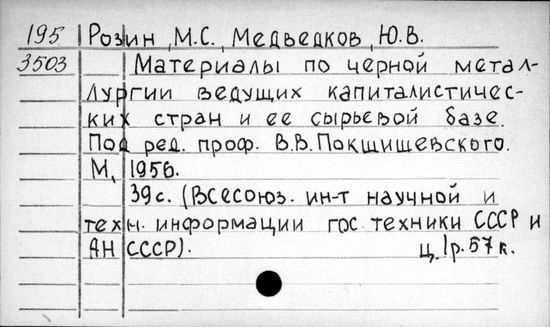 195 Розин, М.С., Медведков, Ю.В.
3503 Материалы по черной метал-
лургии ведущих капиталистичес-
ких стран и ее сырьевой базе.
Под ред. проф. В.В.Покшишевского.
М, 1956.
39с. (Всесоюз. ин-т научной и
техн. информации гос. техники СССР и
АН СССР). Ц. 1р.57к.